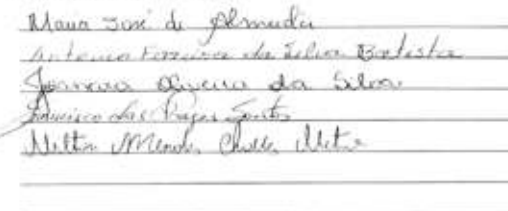 Maria José de Almeida
Antonio Ferreira da Silva Batista
Joanara Oliveira da Silva
Francisco das Chagas Santos
Nilton Mendes